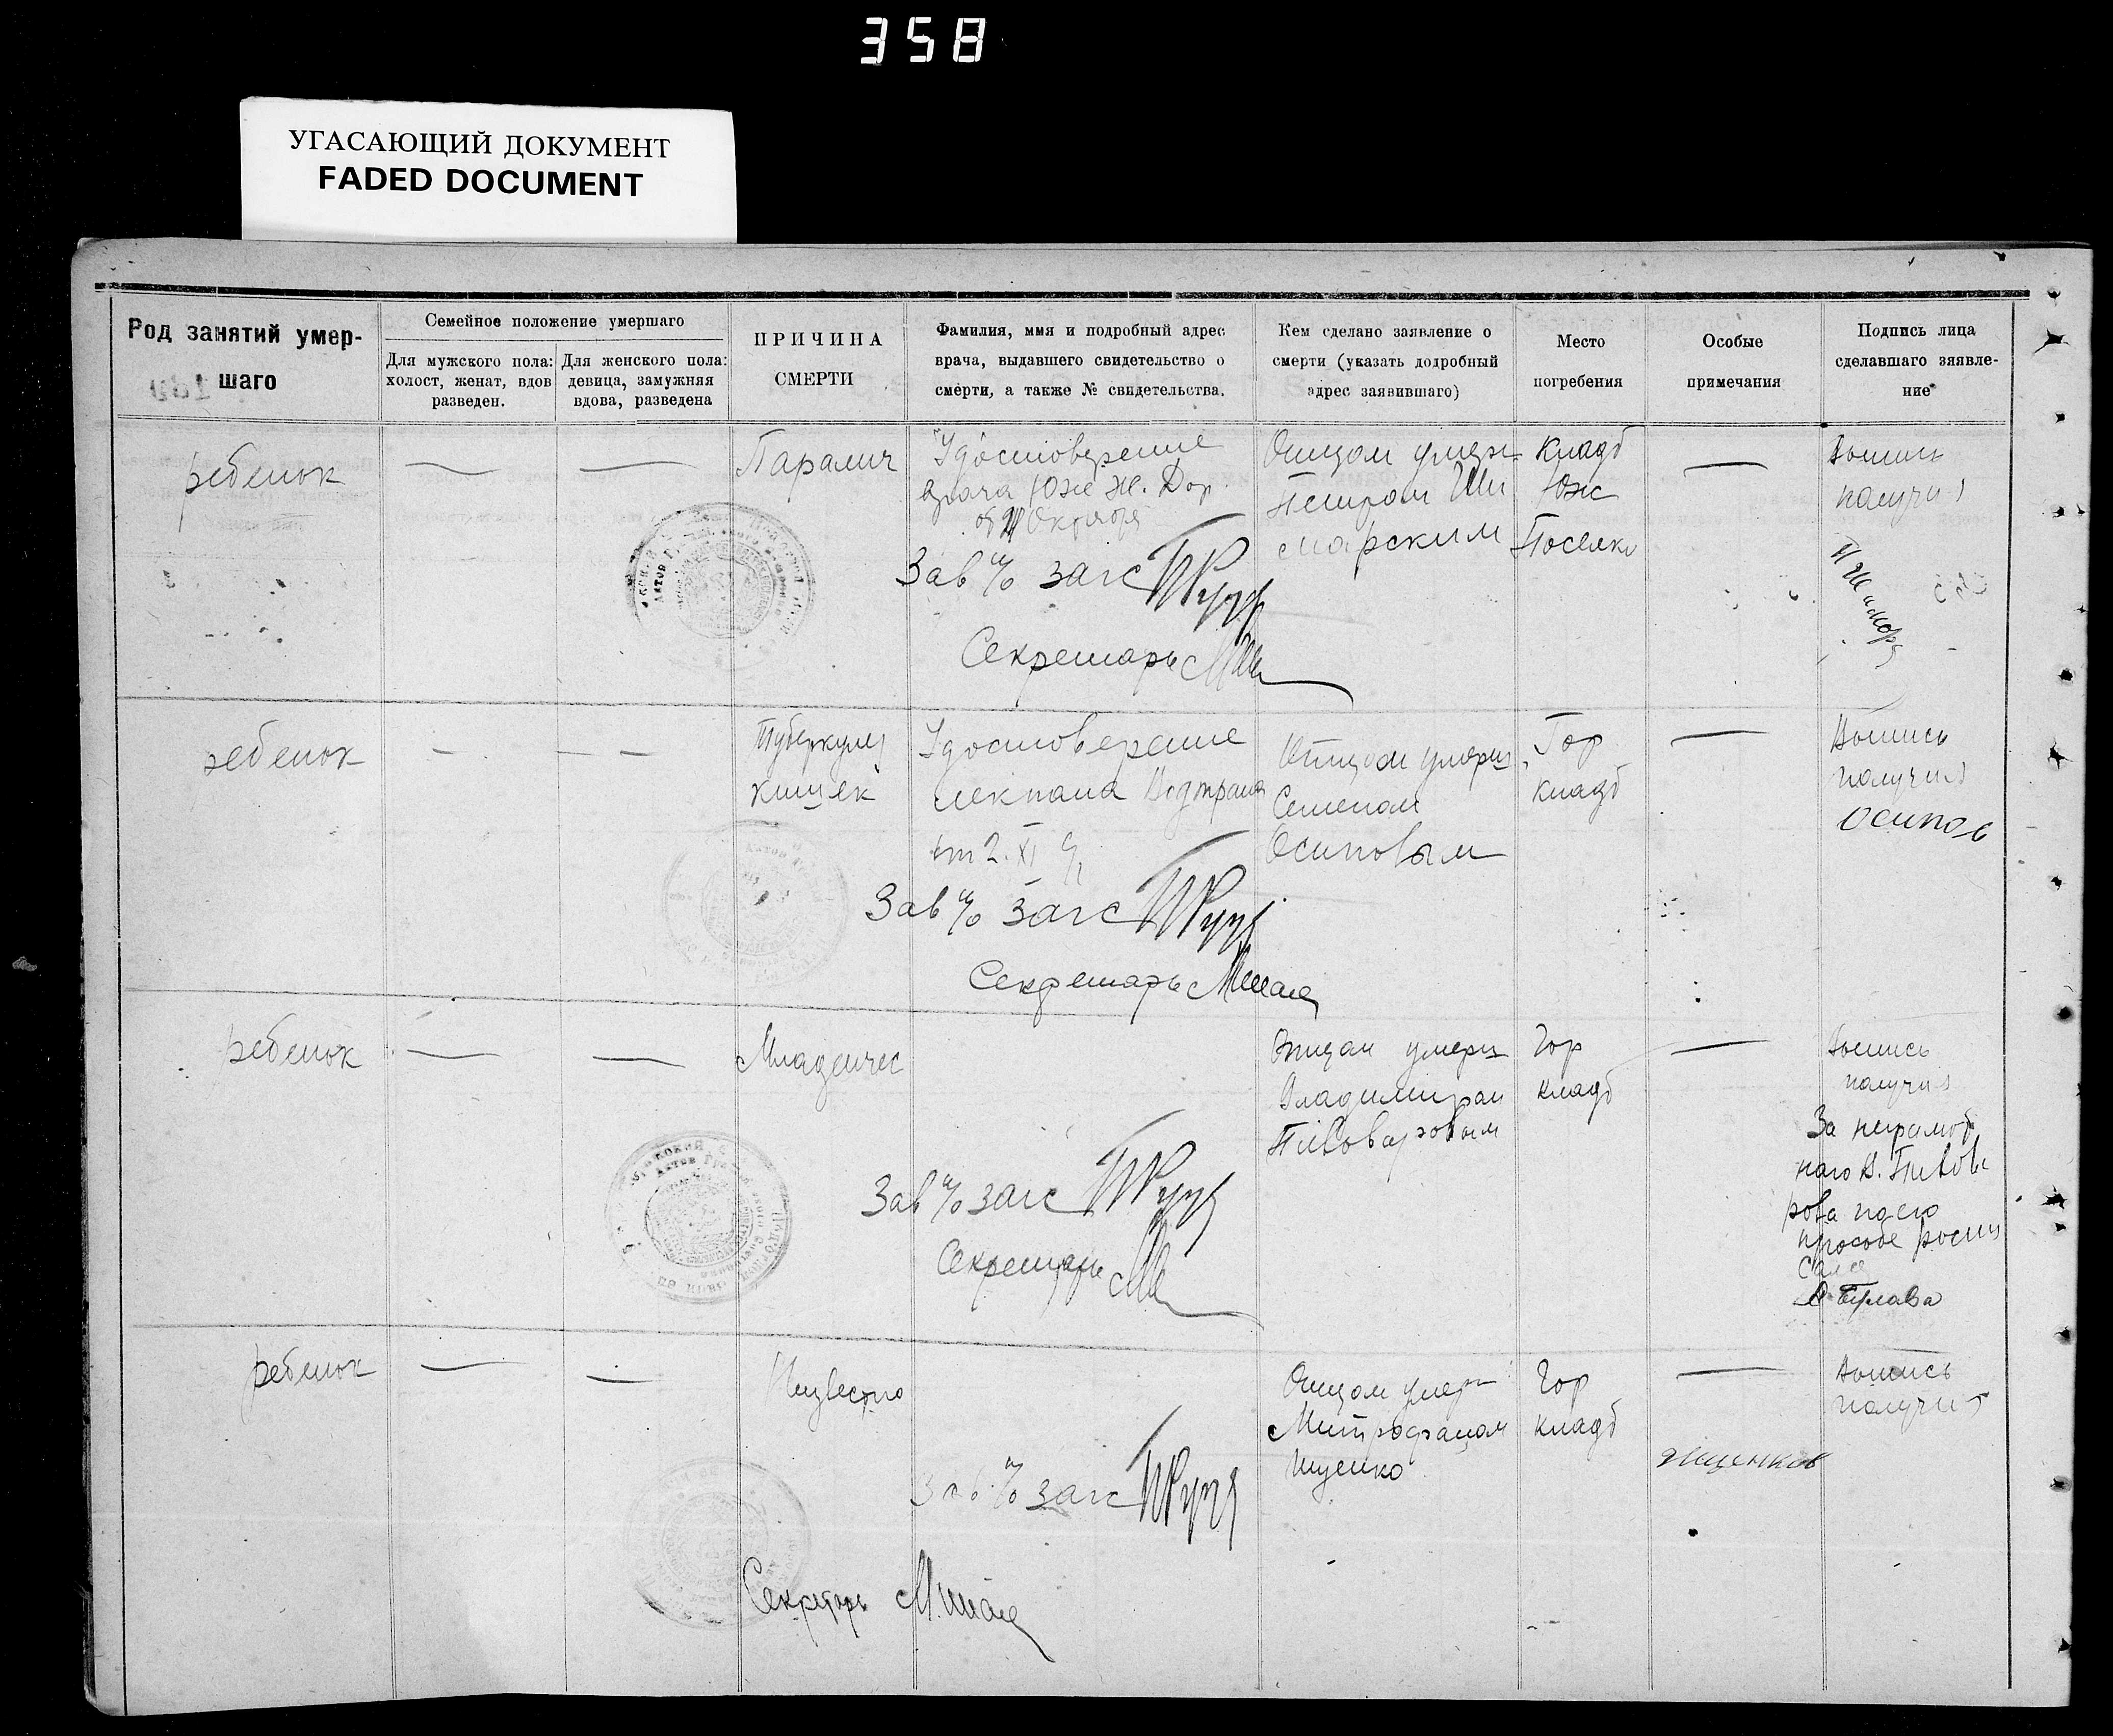 358
УГАСАЮЩИЙ ДОКУМЕНТ
FADED DOCUMENT
Род занятий умер-
шаго
Семейное положение умершаго
Для мужского пола:
холост, женат, вдов
разведен.
Для женского пола:
девица, замужняя
вдова, разведена
ПРИЧИНА
СМЕРТИ
Фамилия, ммя и подробный адрес
врача, выдавшего свидетельство о
смерти, а также № свидетельства.
Кем сделано заявление о
смерти (указать додробный
адрес заявившаго)
Место
погребения
Особые
примечания
Подпись лица
сделавшаго зяявле-
ние
ребенок
Паралич
Удостоверение
врача Юж Ж. Дор.
Октября
Зав п/о загс
Секретарь
Отцом умерш
Петром Ши
марским
Кладб
Юж
Поселка
Выпись
получил
ребенок
Туберкулез
кишек
Удостоверение
лекпома
от 2. XI
Зав п/о загс
Секретарь
Отцом умерш
Семеном
Осиповым
Гор
кладб
Выпись
получил
Осипов
ребенок
Младенчес
Зав п/о загс
Секретарь
Отцом умерш
Владимиром
Пивоваровым
Гор
кладб
Выпись
получил
За неграмот
наго В. Пивова
рова по его
прозбе
ребенок
Неизвестно
Зав п/о загс
Секретарь
Отцом умерш
Митрофаном
Ищенко
Гор
кладб
Выпись
получил